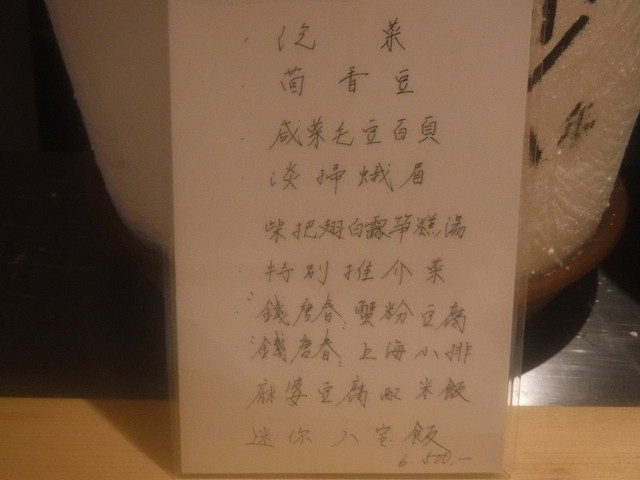 冷菜
茴香豆
咸菜毛豆百頁
淡掃蛾眉
柴把翅白露笋糕湯
特別推介菜
"錢唐春"蟹粉豆腐
"錢唐春"上海小排
麻婆豆腐配米飯
迷你八宝飯
6.500,—